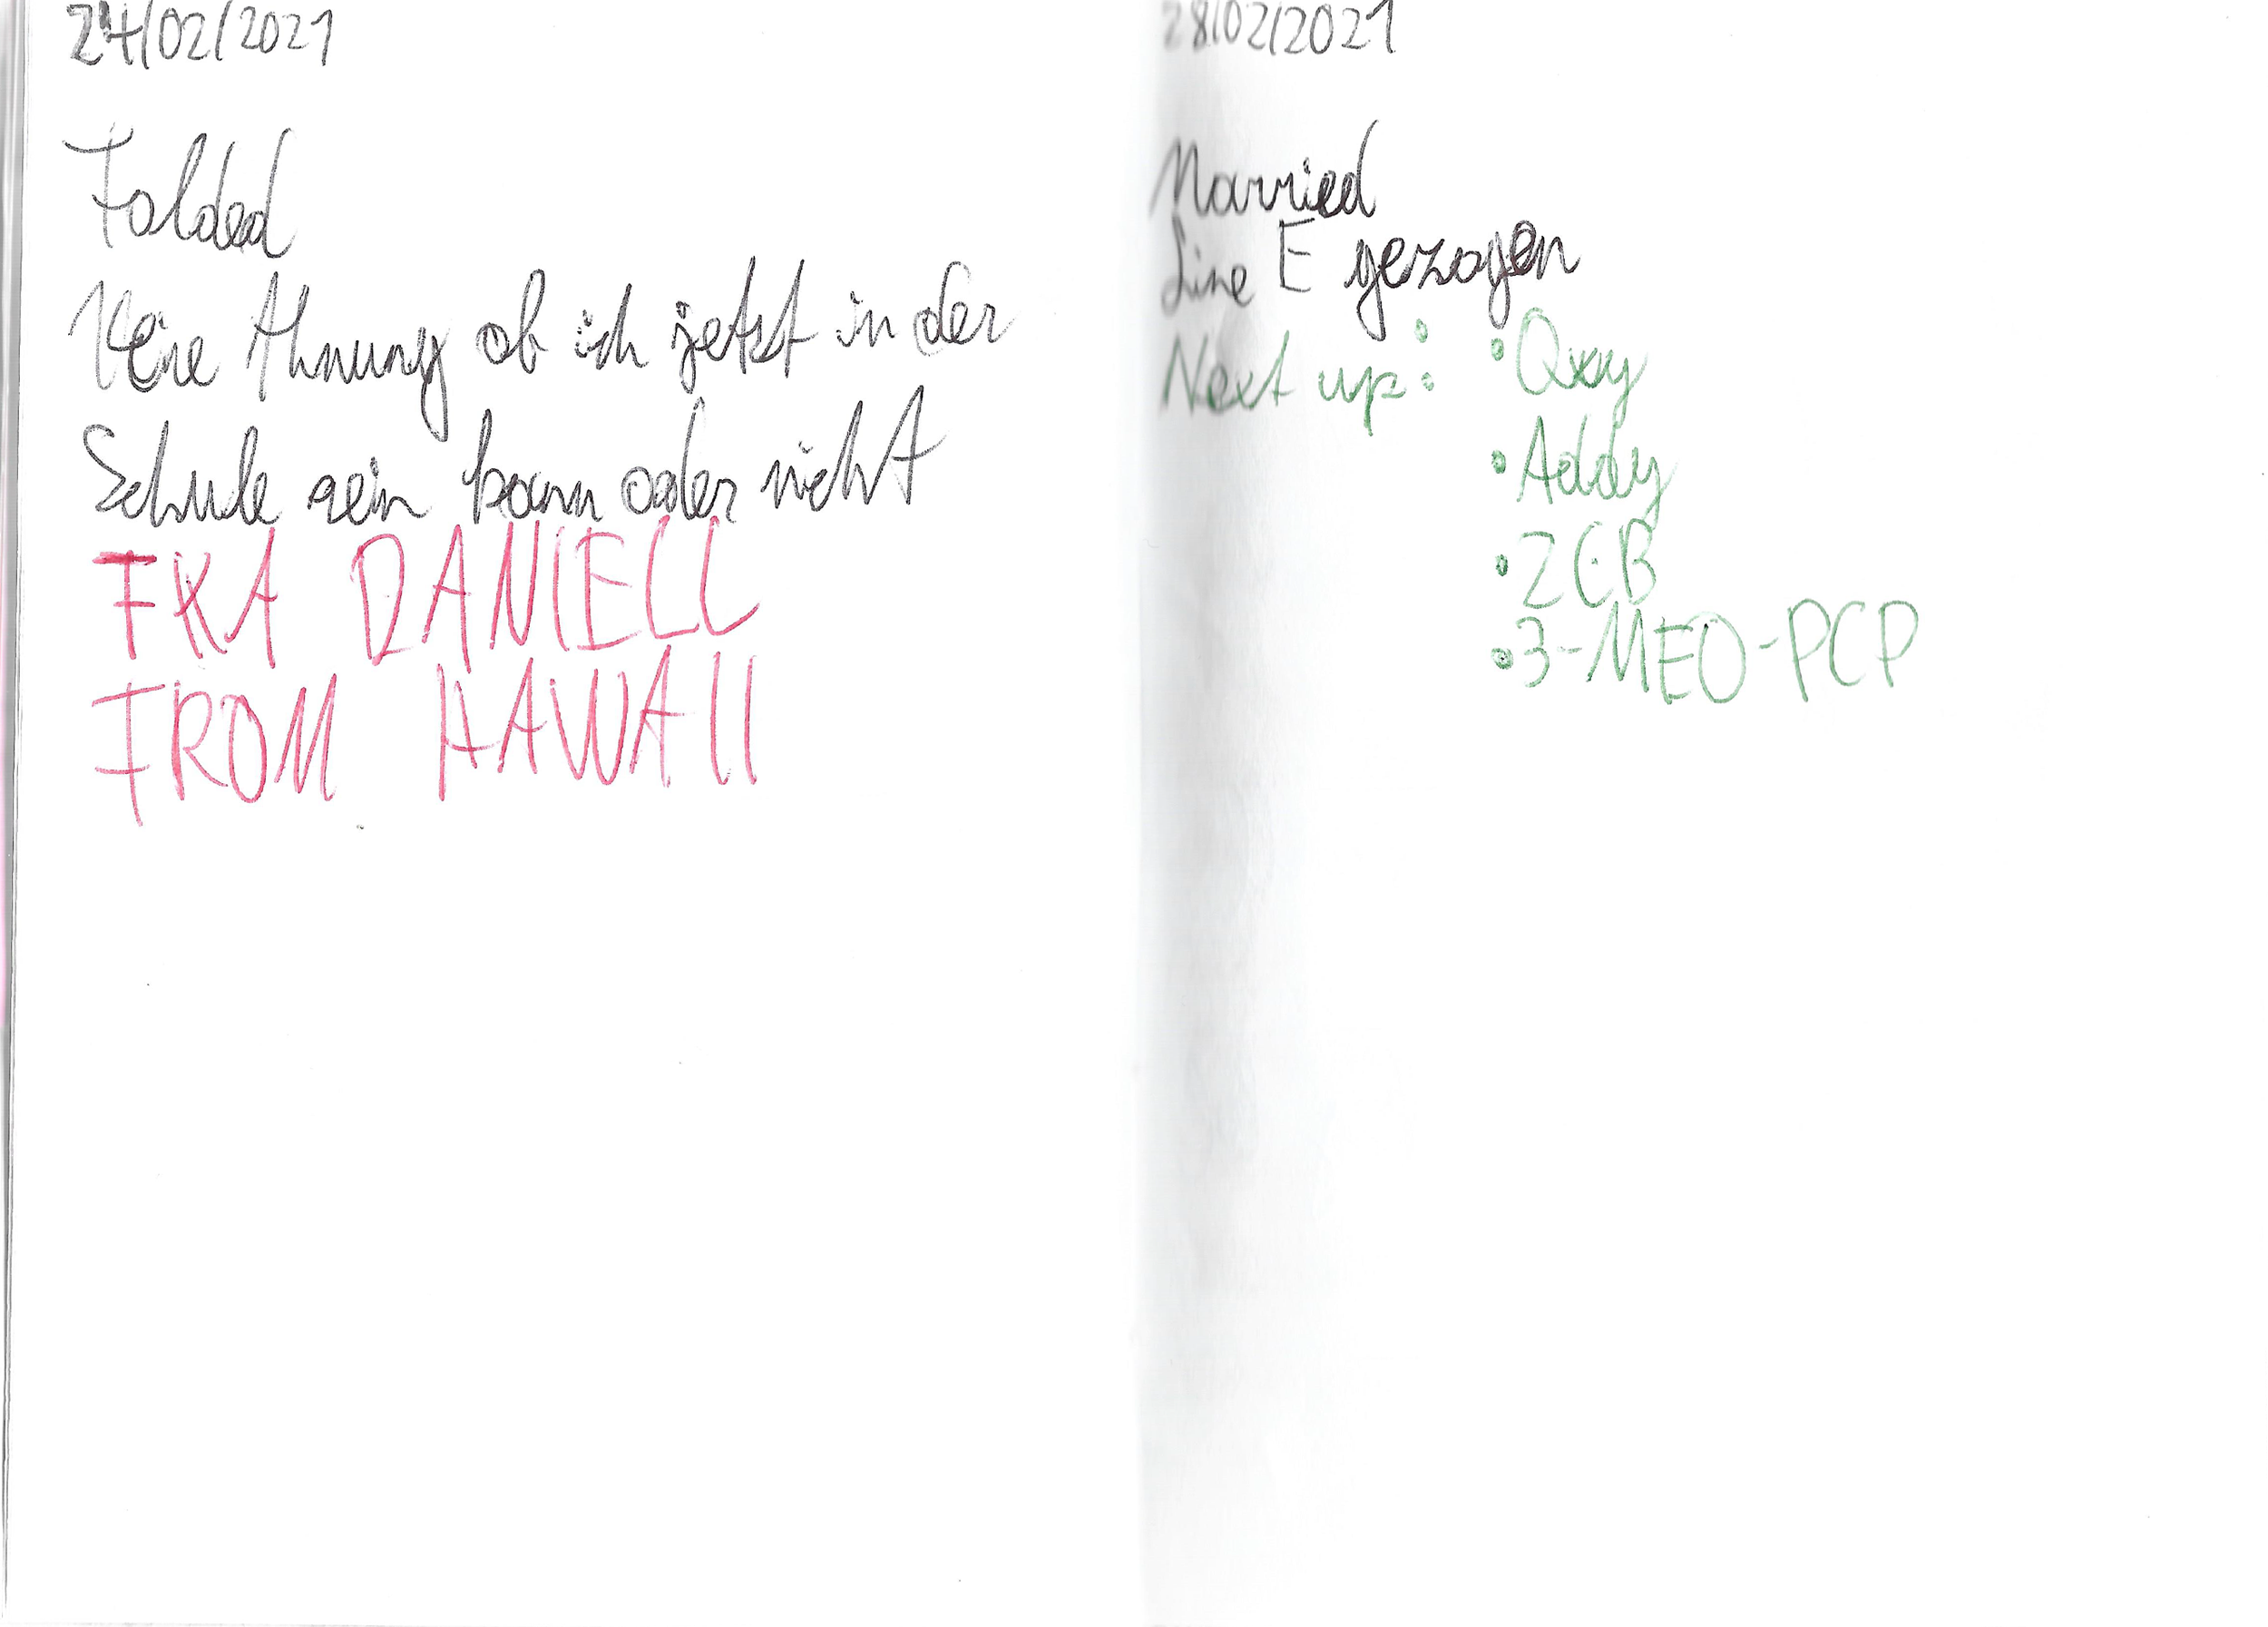 24/02/2021
Folded
Keine Ahnung ob ich jetzt in der
Schule sein kann oder nicht
FKA DANIELL
FROM HAWAII
28/02/2021
Married
Line E gezogen
Next up:
• Oxy
• Addy
• 2CB
• 3-MEO-PCP